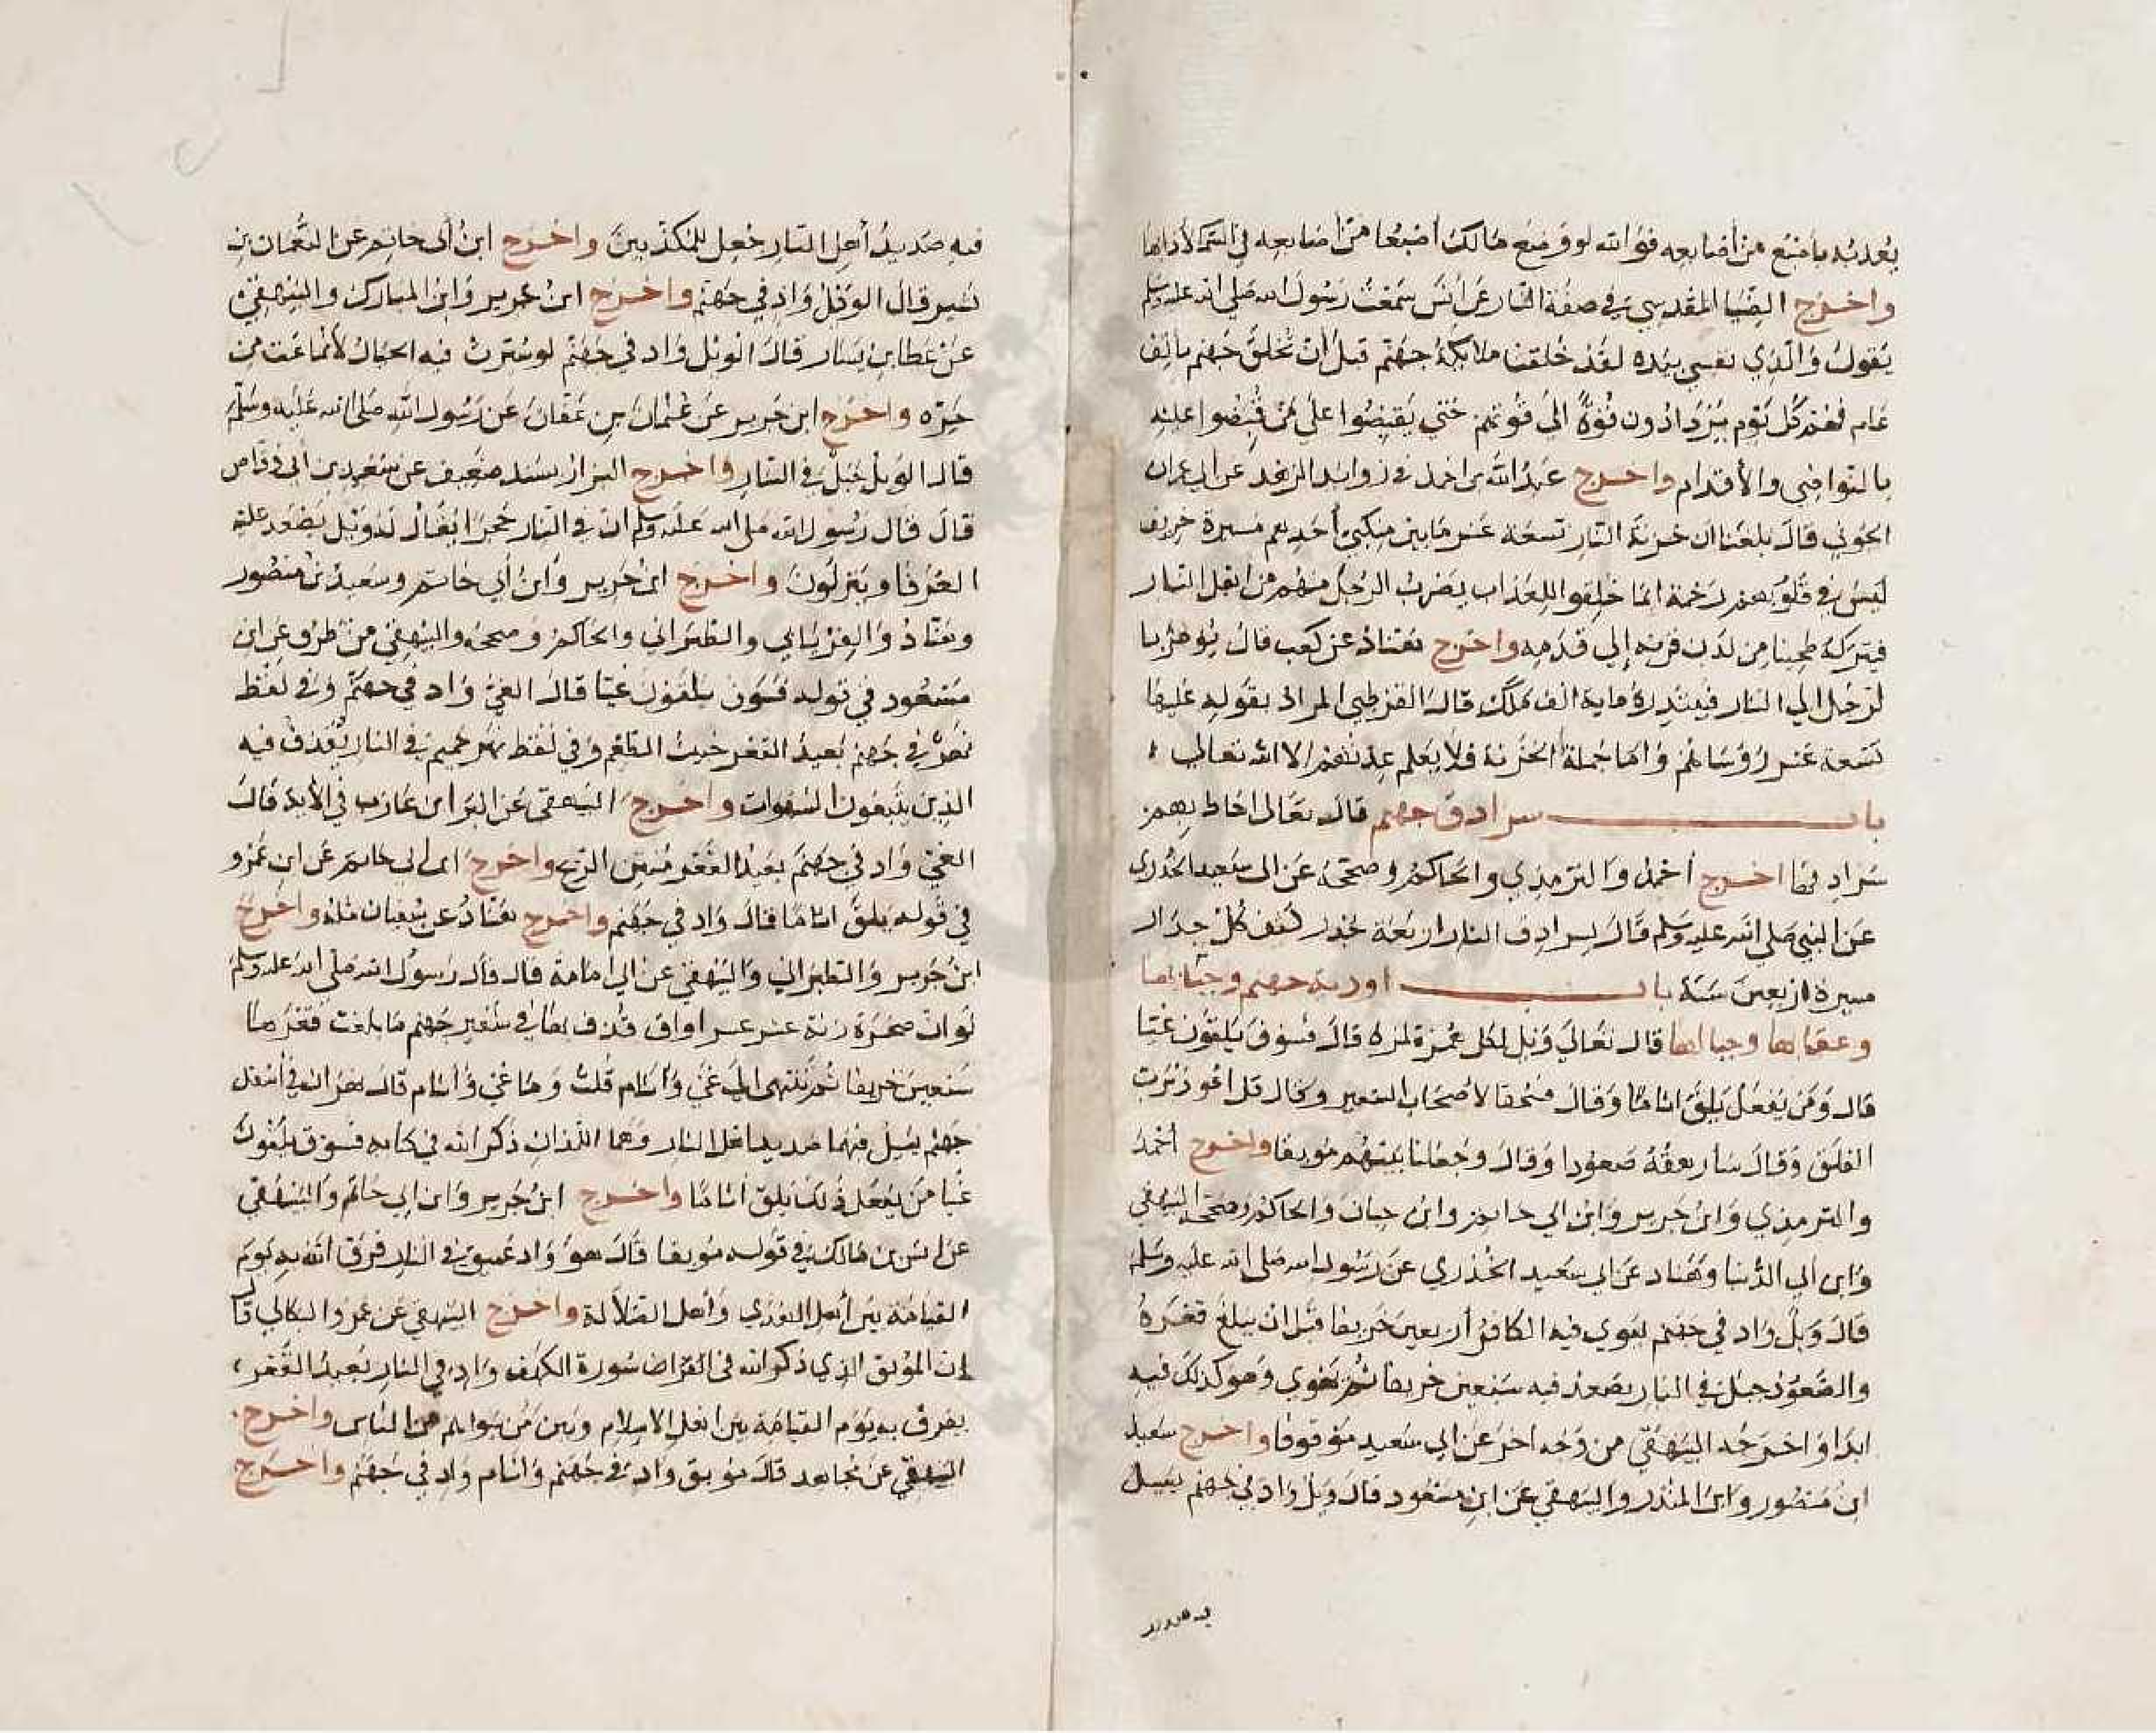 يعذبه باصبع من أصابعه فوالله لو وضع مالك أصبعا من أصابعه في السماء لأذابها
واخرج الضيا المقدسي في صفة النار عن أنس سمعت رسول الله صلى الله عليه وسلم
يقول والذي نفسي بيده لقد خلقت ملائكة جهنم قبل أن تخلق جهنم بألف
عام فهم كل يوم يزدادون قوة الى قوتهم حتى يقبضوا على من قبضوا عليه
بالنواصي والأقدام واخرج عبد الله بن احمد في زوايد الزهد عن ابي عمران
الجوني قال بلغنا ان خزنة النار تسعة عشر ما بين منكبي أحدهم مسيرة خريف
ليس في قلوبهم رحمة انما خلقوا للعذاب يضرب الرجل منهم من اهل النار
فيتركه طحينا من لدن قرنه إلى قدمه واخرج هناد عن كعب قال يؤمر با
لرجل الي النار فيبتدره ماية الف ملك قال القرطبي المراد بقوله عليها
تسعة عشر رؤساهم واما جملة الخزنة فلا يعلم عدتهم الا الله تعالى
باب سرادق جهنم قال تعالى احاط بهم
سرادقها اخرج أحمد والترمذي والحاكم وصححه عن ابي سعيد الخدري
عن النبي صلى الله عليه وسلم قال لسرادق النار اربعة جدر كثف كل جدار
مسيرة اربعين سنة باب اودية جهنم وجبالها
وعقابها وجبالها قال تعالى ويل لكل همزة لمزة قال فسوف يلقون غيا
قال ومن يفعل يلق اثاما وقال فسحقا لأصحاب السعير وقال قل اعوذ برب
الفلق وقال سأرهقه صعودا وقال وجعلنا بينهم موبقا واخرج أحمد
والترمذي وابن جرير وابن ابي حاتم وابن حبان والحاكم وصححه البيهقي
وابن أبي الدنيا وهناد عن ابي سعيد الخدري عن رسول الله صلى الله عليه وسلم
قال ويل واد في جهنم يهوي فيه الكافر أربعين خريفا قبل ان يبلغ قعره
والصعود جبل في النار يصعد فيه سبعين خريفا ثم يهوي وهو كذلك فيه
ابدا واخرجه البيهقي من وجه اخر عن ابي سعيد موقوفا واخرج سعيد
ابن منصور وابن المنذر والبيهقي عن ابن مسعود قال ويل واد في جهنم يسيل
فيه صديد أهل النار جعل للمكذبين واخرج ابن أبي حاتم عن النعمان بن
بشير قال الويل واد في جهنم واخرج ابن جرير وابن المبارك والبيهقي
عن عطا بن يسار قال الويل واد في جهنم لو سيرت فيه الجبال لأنماعت من
حره واخرج ابن جرير عن عثمان بن عفان عن رسول الله صلى الله عليه وسلم
قال الويل جبل في النار واخرج البزار بسند ضعيف عن سعد بن أبي وقاص
قال قال رسول الله صلى الله عليه وسلم ان في النار حجرا يقال له ويل يصعد عليه
العرفا وينزلون واخرج ابن جرير وابن أبي حاتم وسعيد بن منصور
وهناد والفريابي والطبراني والحاكم وصححه والبيهقي من طرق عن ابن
مسعود في قوله فسوف يلقون غيا قال الغي واد في جهنم وفي لفظ
نهر في جهنم بعيد القعر خبيث الطعم وفي لفظ نهر حميم في النار يقذف فيه
الذين يتبعون الشهوات واخرج البيهقي عن البراء بن عازب في الآية قال
الغي واد في جهنم بعيد القعر منتن الريح واخرج ابن ابي حاتم عن ابن عمرو
في قوله يلق اثاما قال واد في جهنم واخرج هناد عن سفيان مثله واخرج
ابن جرير والطبراني والبيهقي عن ابي امامة قال قال رسول الله صلى الله عليه وسلم
لو ان صخرة زنة عشر عشر اواق قذف بها في شفير جهنم ما بلغت قعرها
سبعين خريفا ثم تنتهى الى غي وأثام قلت وما غي وأثام قال نهران في أسفل
جهنم يسيل فيهما صديد اهل النار وهما اللذان ذكر الله في كتابه فسوف يلقون
غيا من يفعل ذلك يلق أثاما واخرج ابن جرير وابن ابي حاتم والبيهقي
عن انس بن مالك في قوله موبقا قال هو واد عميق في النار فرق الله به يوم
القيامة بين أهل الهدي وأهل الضلالة واخرج البيهقي عن عمرو البكالي قال
إن الموبق الذي ذكر الله في القران في سورة الكهف واد في النار بعيد القعر
يفرق به يوم القيامة بين اهل الاسلام وبين من سواهم من الناس واخرج
البيهقي عن مجاهد قال موبق واد في جهنم وأثام واد في جهنم واخرج